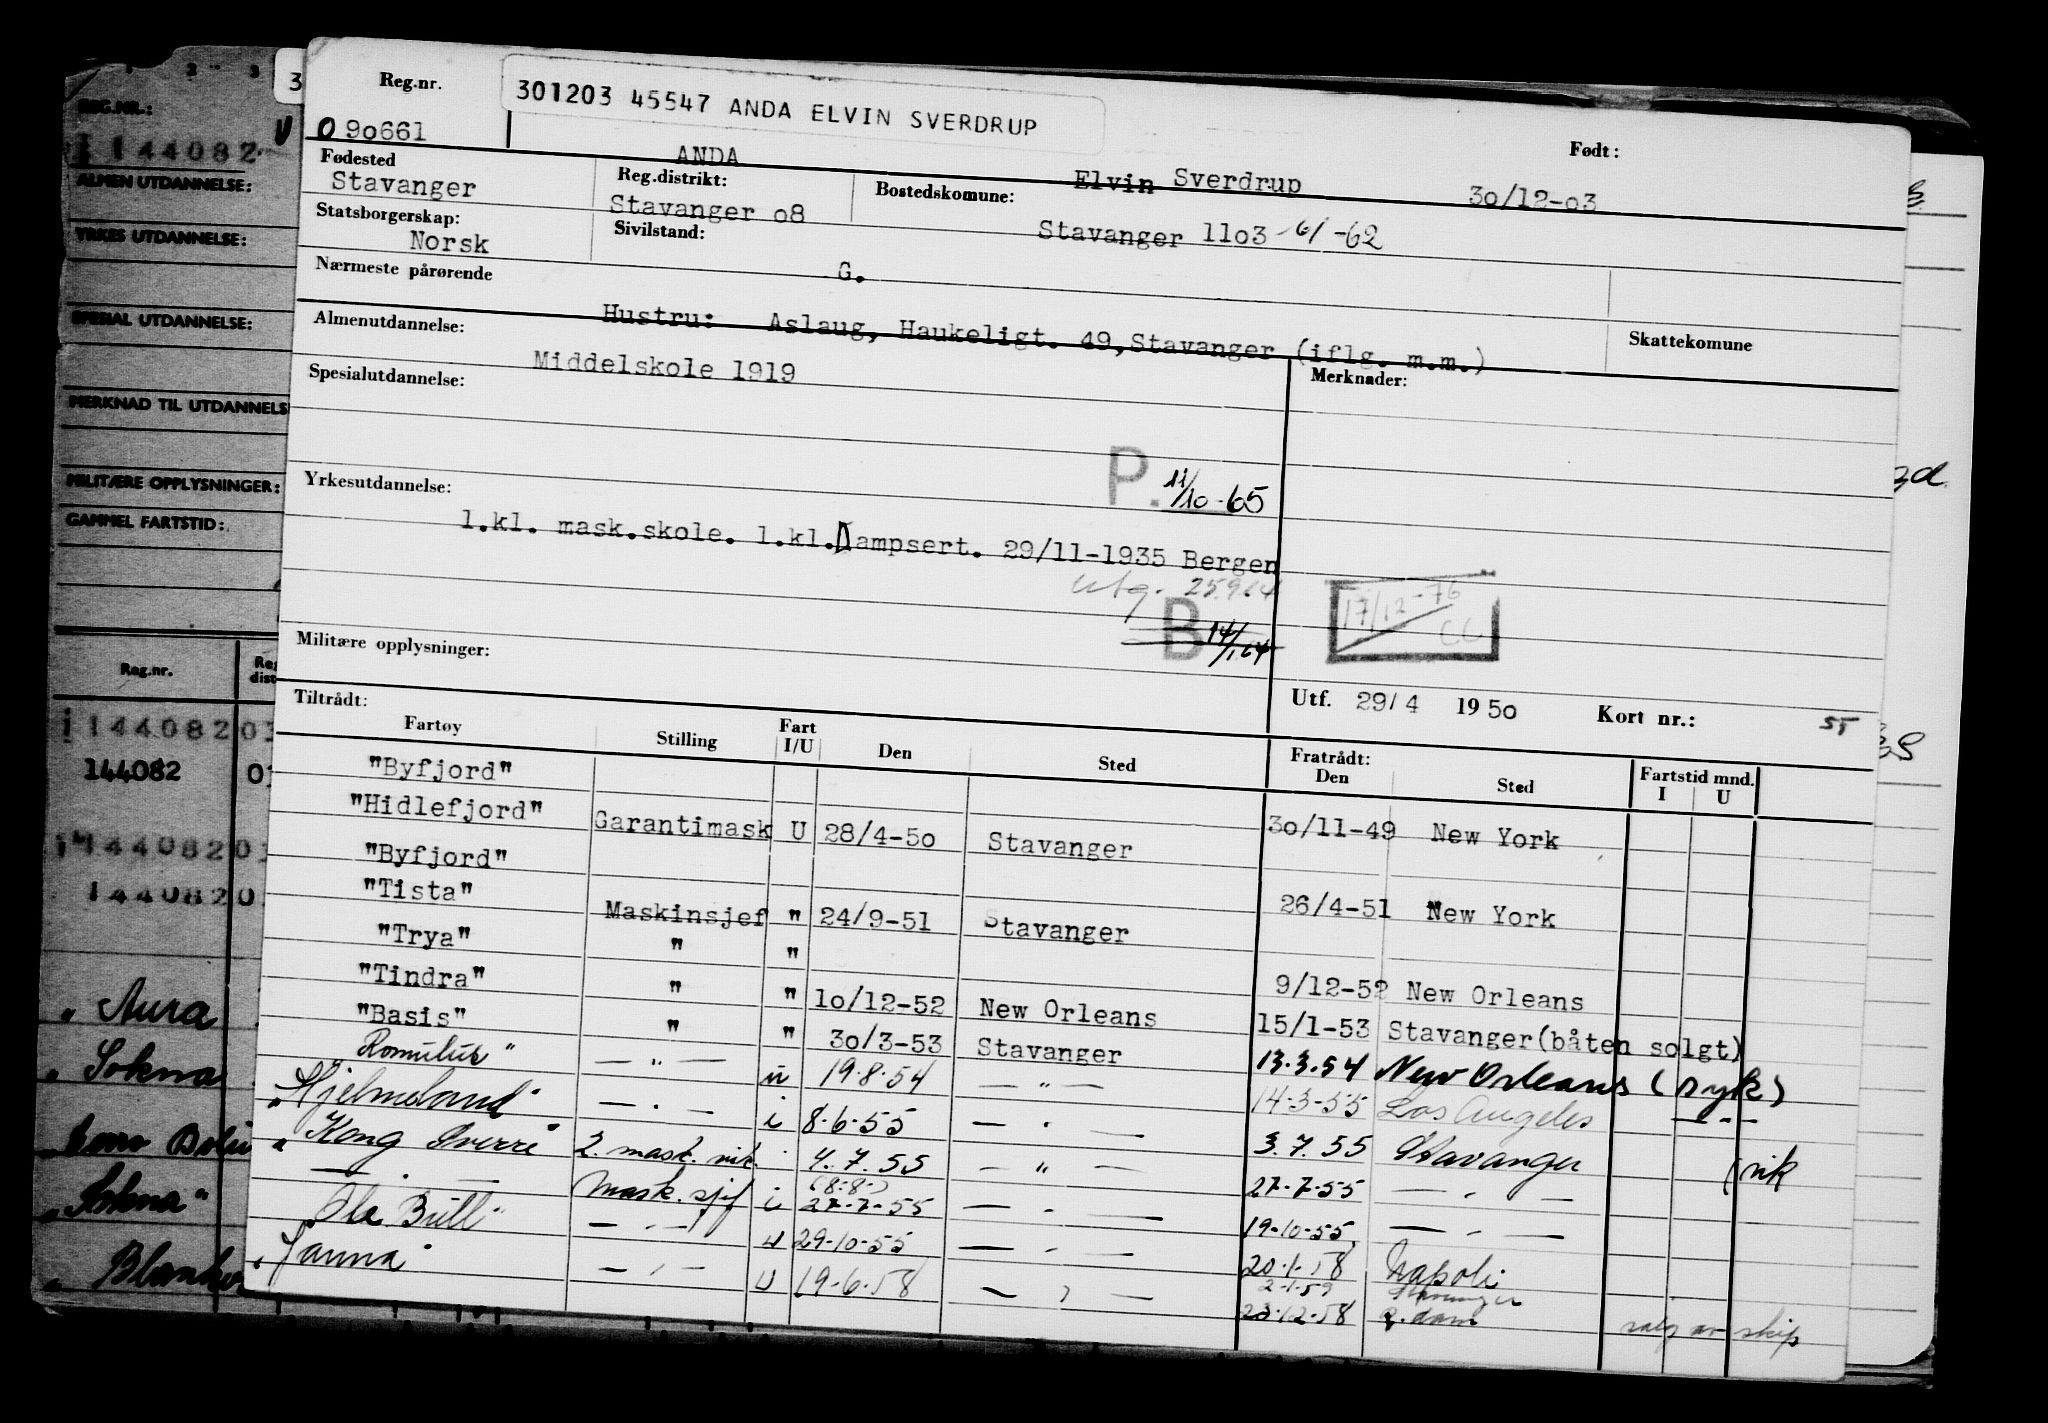 301203 45547 ANDA ELVIN SVERDRUP
Reg.nr.
O 9o661
ANDA
Elvin Sverdrup
Født:
3o/12-o3
Fødested
Stavanger
Reg.distrikt:
Stavanger o8
Bostedskomune:
Stavanger 11o3 6/-62
Statsborgerskap:
Norsk
Sivilstand:
G.
Nærmeste pårørende
Hustru: Aslaug, Haukeligt. 49, Stavanger (iflg. m.m.)
Skattekomune
Almenutdannelse:
Middelskole 1919
Spesialutdannelse:
Merknader:
P. 11/10-65
Yrkesutdannelse:
1.kl. mask.skole. 1.kl.Dampsert. 29/11-1935 Bergen
utg. 25.9.64
B 14/1.64
17/12-76
CC
Militære opplysninger:
Utf. 29/4 1950 Kort nr.: 55
Tiltrådt:
Fartøy Stilling Fart I/U Den Sted Fratrådt: Den Sted Fartstid mnd. I U
"Byfjord" 3o/11-49 New York
"Hidlefjord" Garantimask U 28/4-5o Stavanger
"Byfjord" 26/4-51 New York
"Tista" Maskinsjef " 24/9-51 Stavanger
"Trya" " " 9/12-52 New Orleans
"Tindra" " " 1o/12-52 New Orleans 15/1-53 Stavanger(båten solgt)
"Basis" " " 3o/3-53 Stavanger 13.3.54 New Orleans (syk)
Romulus" — " — u 19.8.54 — " — 14-3-55 Los Angeles — " —
"Hjelmeland" — " — i 8.6.55 — " — 3.7.55 Stavanger
" Kong Sverre 2. mask. vik. " 4.7.55 — " — 27.7.55 — " — (vik
— " — Mask. sjef i (8.8.) 27.7.55 — " — 19-10-55 — " —
"Ole Bull" — " — u 29-10-55 — " — 20.1.58 Napoli
"Hanna" — " — u 19.6.58 — " — 2-1.59 Stavanger
23.12.58 R.dam salg av skip
REG.NR.:
144082
ALMEN UTDANNELSE:
YRKES UTDANNELSE:
SPESIAL UTDANNELSE:
MERKNAD TIL UTDANNELS
MILITÆRE OPPLYSNINGER:
GAMMEL FARTSTID:
Reg.nr. Reg dist
144082 03
144082 01
144082 03
144082 0
" Aura
" Sokna
"Sokna"